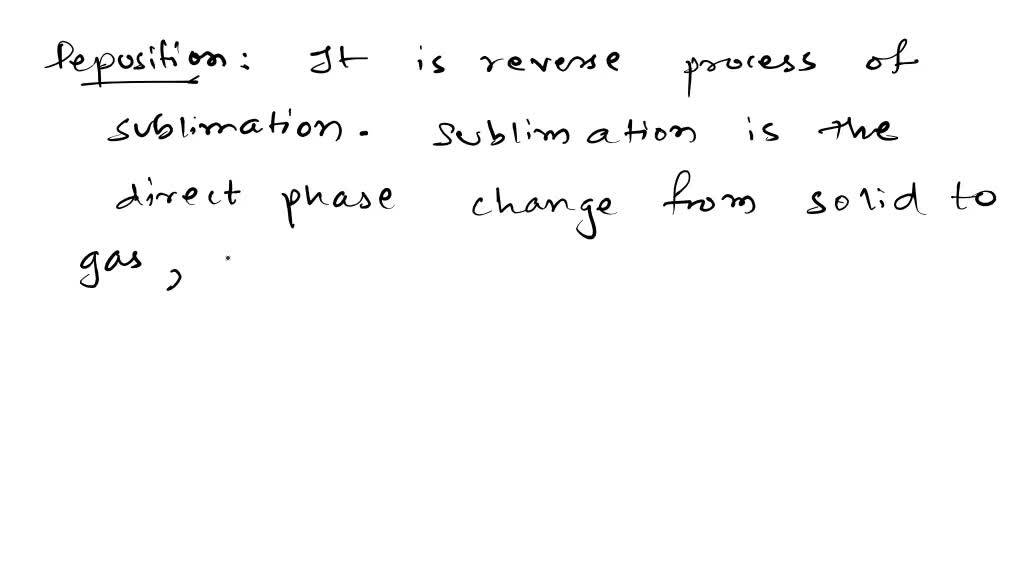 Deposition: It is reverse process of
sublimation. sublimation is the
direct phase change from solid to
gas,